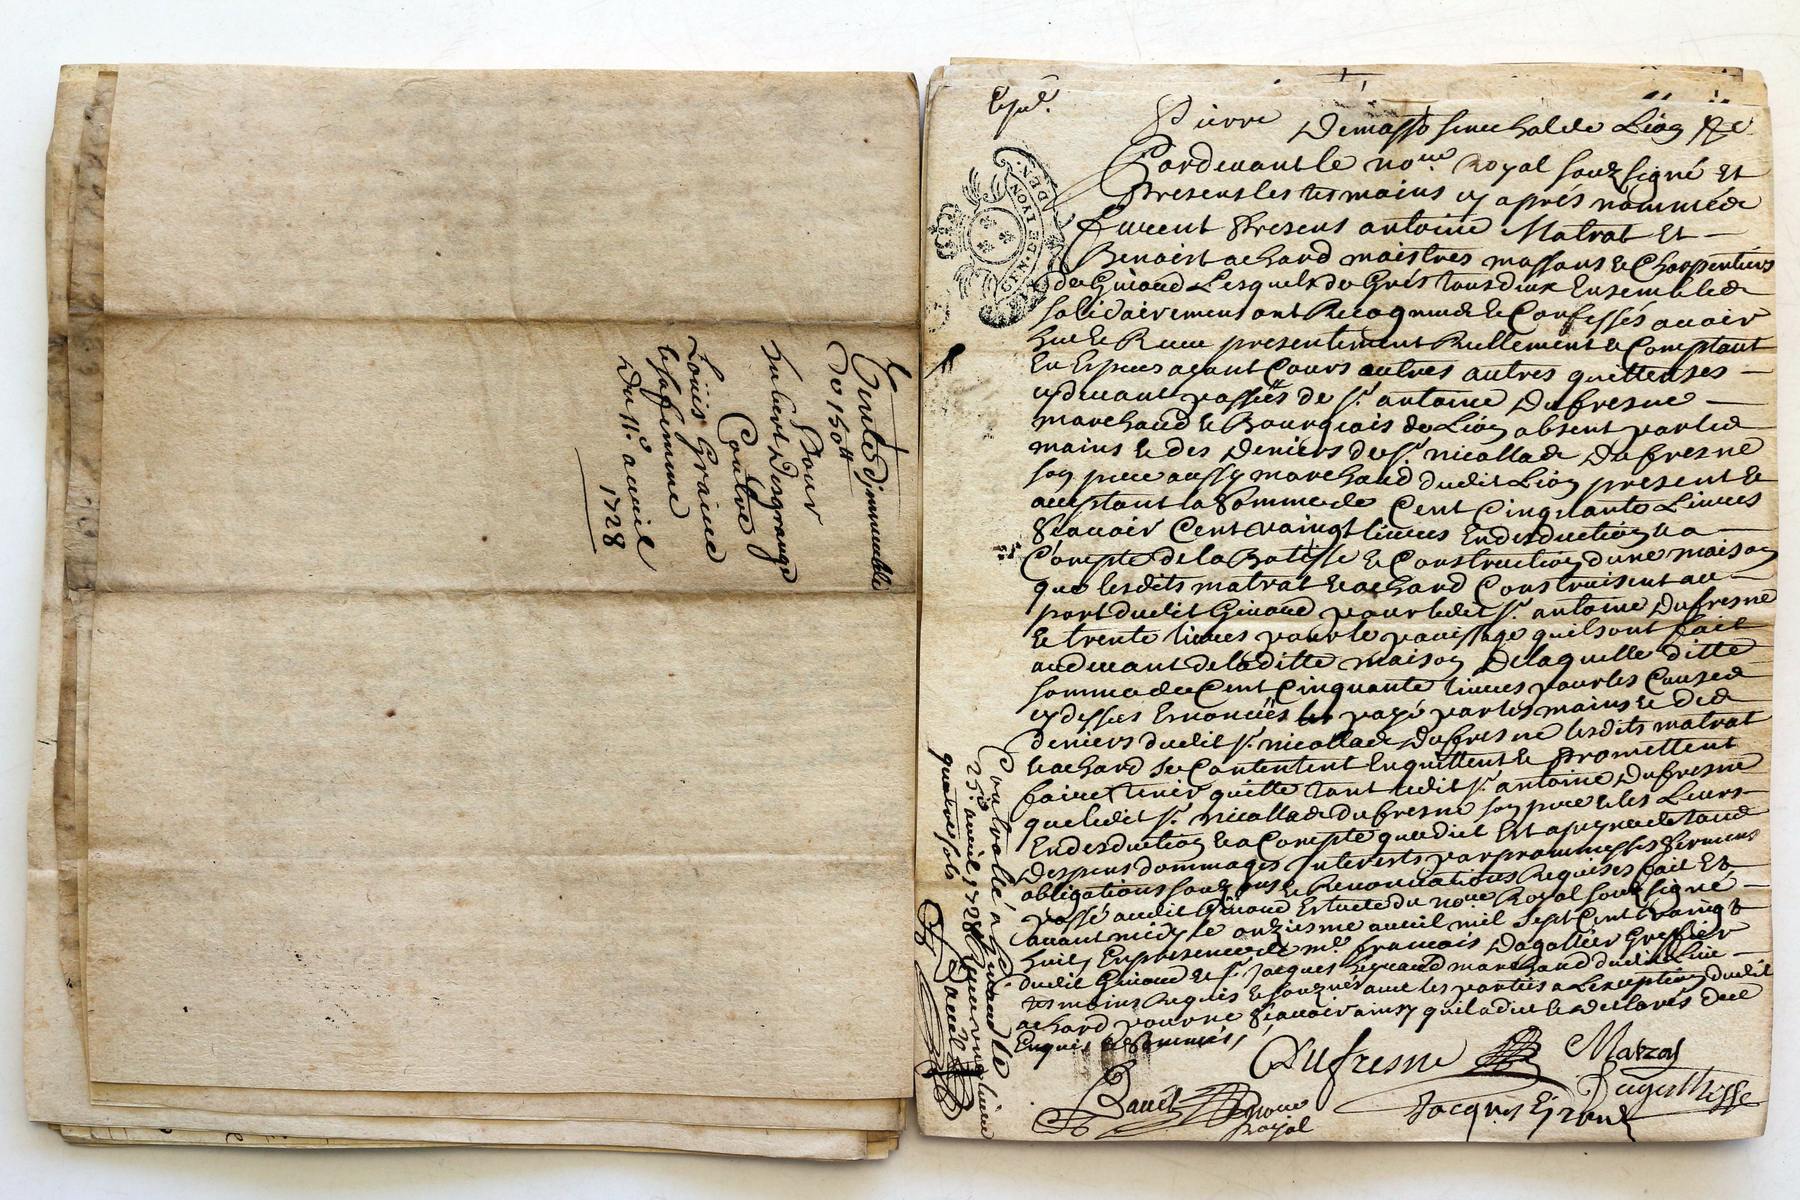 Vente d'jmmeuble
De 150tt
Pour
hubert Desgrange
Contre
Loüis Graiue
e sa femme
Du 11e auril
1728
GEN·DE·LYON
DEN·
Pierre Demasso senechal de Lion &c
Pardeuant le noue Royal souzsigné Et
Presens les tesmoins cy aprés nommés
furent Presens antoine Matrat Et
Benoist achard maistres massons & Charpentiers
de Giuord Lesquels de Grés tous deux Ensemble &
solidairement ont Recogneu & Confessés auoir
heu & Receu presentement Reellement & Comptant
En Especes ayant Cours autres autres quittances
cydeuant passées de sr. antoine Dufresne
marchand & Bourgeois de Lion absent par les
mains & des deniers de sr nicollas Dufresne
son pere aussy marchand dudit Lion present &
acceptant la somme de Cent Cinquante Liures
scauoir Cent vaingt liures En desduction & a
Compte de la Batisse & Construction d'une maison
que lesdits matrat & achard Construisent au
port dudit Giuord pour ledit sr. antoine Dufresne
& trente liures pour le pauissage quils ont fait
au deuant de laditte maison De laquelle ditte
somme de Cent Cinquante liures pour les Causes
cy dessus Enoncées payé par les mains & des
deniers dudit sr. nicollas Dufresne lesdits matrat
& achard se Contentent En quittent & Promettent
faire tenir quitte tant ledit sr. antoine Dufresne
que ledit sr. nicollas Dufresne son pere & les Leurs
En desduction & a Compte que dict Est a peyne de tous
despens dommages Interests par prommesses serment
obligations souzmises & Renonciations Requises fait Et
Passé audit Giuord Estude du noue Royal souzsigné
auant midy le onziesme auril mil sept Cent vaingt
huit En presence de me francois Dagallier Greffier
dudit Giuord & sr. Jacques marchand dudit Lieu
tesmoins Requis & souznés auec les parties a Lexception dudit
achard pour ne scauoir ainsy quil a dict & declarés de ce
Enquis & sommés,
Dufresne
Matrat
Bauet
noue
Royal
Controllé a Giuord le
25e auril 1728
quatre sols
Bauet